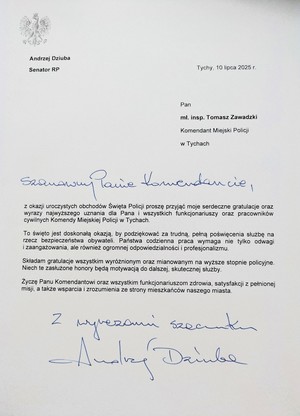 Andrzej Dziuba
Senator RP
Tychy, 10 lipca 2025 r.
Pan
mł. insp. Tomasz Zawadzki
Komendant Miejski Policji
w Tychach
Szanowny Panie Komendancie,
z okazji uroczystych obchodów Święta Policji proszę przyjąć moje serdeczne gratulacje oraz
wyrazy najwyższego uznania dla Pana i wszystkich funkcjonariuszy oraz pracowników
cywilnych Komendy Miejskiej Policji w Tychach.
To święto jest doskonałą okazją, by podziękować za trudną, pełną poświęcenia służbę na
rzecz bezpieczeństwa obywateli. Państwa codzienna praca wymaga nie tylko odwagi
i zaangażowania, ale również ogromnej odpowiedzialności i profesjonalizmu.
Składam gratulacje wszystkim wyróżnionym oraz mianowanym na wyższe stopnie policyjne.
Niech te zasłużone honory będą motywacją do dalszej, skutecznej służby.
Życzę Panu Komendantowi oraz wszystkim funkcjonariuszom zdrowia, satysfakcji z pełnionej
misji, a także wsparcia i zrozumienia ze strony mieszkańców naszego miasta.
Z wyrazami szacunku
Andrzej Dziuba